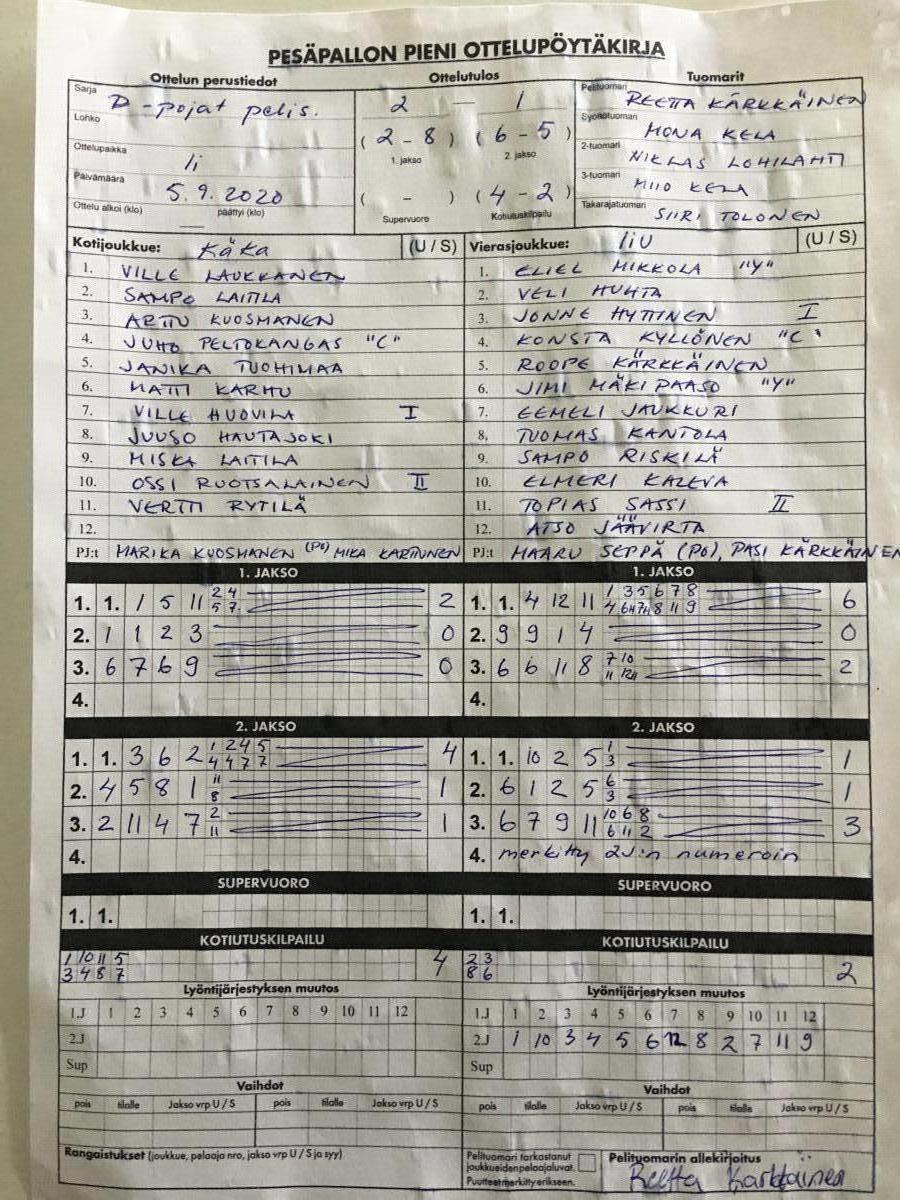 PESÄPALLON PIENI OTTELUPÖYTÄKIRJA
Ottelun perustiedot
Sarja D-pojat pelis.
Lohko
Ottelupaikka Ii
Päivämäärä 5.9.2020
Ottelu alkoi (klo) päättyi (klo)
Ottelutulos
2 — 1
(2-8) (6-5)
1. jakso 2. jakso
( - ) (4-2)
Supervuoro Kotiutuskilpailu
Tuomarit
Pelituomari REETTA KÄRKKÄINEN
Syöttötuomari MONA KELA
2-tuomari NIKLAS LOHILAHTI
3-tuomari MIIO KELA
Takarajatuomari SIIRI TOLONEN
Kotijoukkue: KäKa (U / S)
1. VILLE LAUKKANEN
2. SAMPO LAITILA
3. ARTTU KUOSMANEN
4. JUHO PELTOKANGAS "C"
5. JANIKA TUOHIMAA
6. MATTI KARHU
7. VILLE HUOVILA I
8. JUUSO HAUTAJOKI
9. MISKA LAITILA
10. OSSI RUOTSALAINEN II
11. VERTTI RYTILÄ
12.
PJ:t MARIKA KUOSMANEN (PO) MIKA KARTUNEN
Vierasjoukkue: IiU (U / S)
1. ELIEL MIKKOLA "Y"
2. VELI HUHTA
3. JONNE HYTTINEN I
4. KONSTA KYLLÖNEN "C"
5. ROOPE KÄRKKÄINEN
6. JIMI MÄKIPAASO "Y"
7. EEMELI JAUKKURI
8. TUOMAS KANTOLA
9. SAMPO RISKILÄ
10. ELMERI KALEVA
11. TOPIAS SASSI II
12. ATSO JÄÄVIRTA
PJ:t MAARU SEPPÄ (PO), PASI KÄRKKÄINEN
1. JAKSO
1. 1. 1 5 11 2 4 2
5 7
2. 1 1 2 3 0
3. 6 7 6 9 0
4.
1. JAKSO
1. 1. 4 12 11 1 3 5 6 7 8 6
2. 9 9 1 4 0
3. 6 6 11 8 7 10 2
4.
2. JAKSO
1. 1. 3 6 2 1 2 4 5 4
4 4 7 7
2. 4 5 8 1 11 1
8
3. 2 11 4 7 2 1
11
4.
2. JAKSO
1. 1. 10 2 5 1 1
3
2. 6 1 2 5 6 1
3
3. 6 7 9 11 10 6 8 3
6 11 2
4. merkitty 2J:n numeroin
SUPERVUORO
1. 1.
SUPERVUORO
1. 1.
KOTIUTUSKILPAILU
1 10 11 5 4
3 4 8 7
KOTIUTUSKILPAILU
2 3 2
8 6
Lyöntijärjestyksen muutos
1.J 1 2 3 4 5 6 7 8 9 10 11 12
2.J
Sup
Lyöntijärjestyksen muutos
1.J 1 2 3 4 5 6 7 8 9 10 11 12
2.J 1 10 3 4 5 6 12 8 2 7 11 9
Sup
Vaihdot
pois tilalle Jakso vrp U / S pois tilalle Jakso vrp U / S
Vaihdot
pois tilalle Jakso vrp U / S pois tilalle Jakso vrp U / S
Rangaistukset (joukkue, pelaaja nro, jakso vrp U / S ja syy)
Pelituomari tarkastanut
joukkueiden pelaajaluvat.
Puutteet merkitty erikseen.
Pelituomarin allekirjoitus
Reetta Kärkkäinen